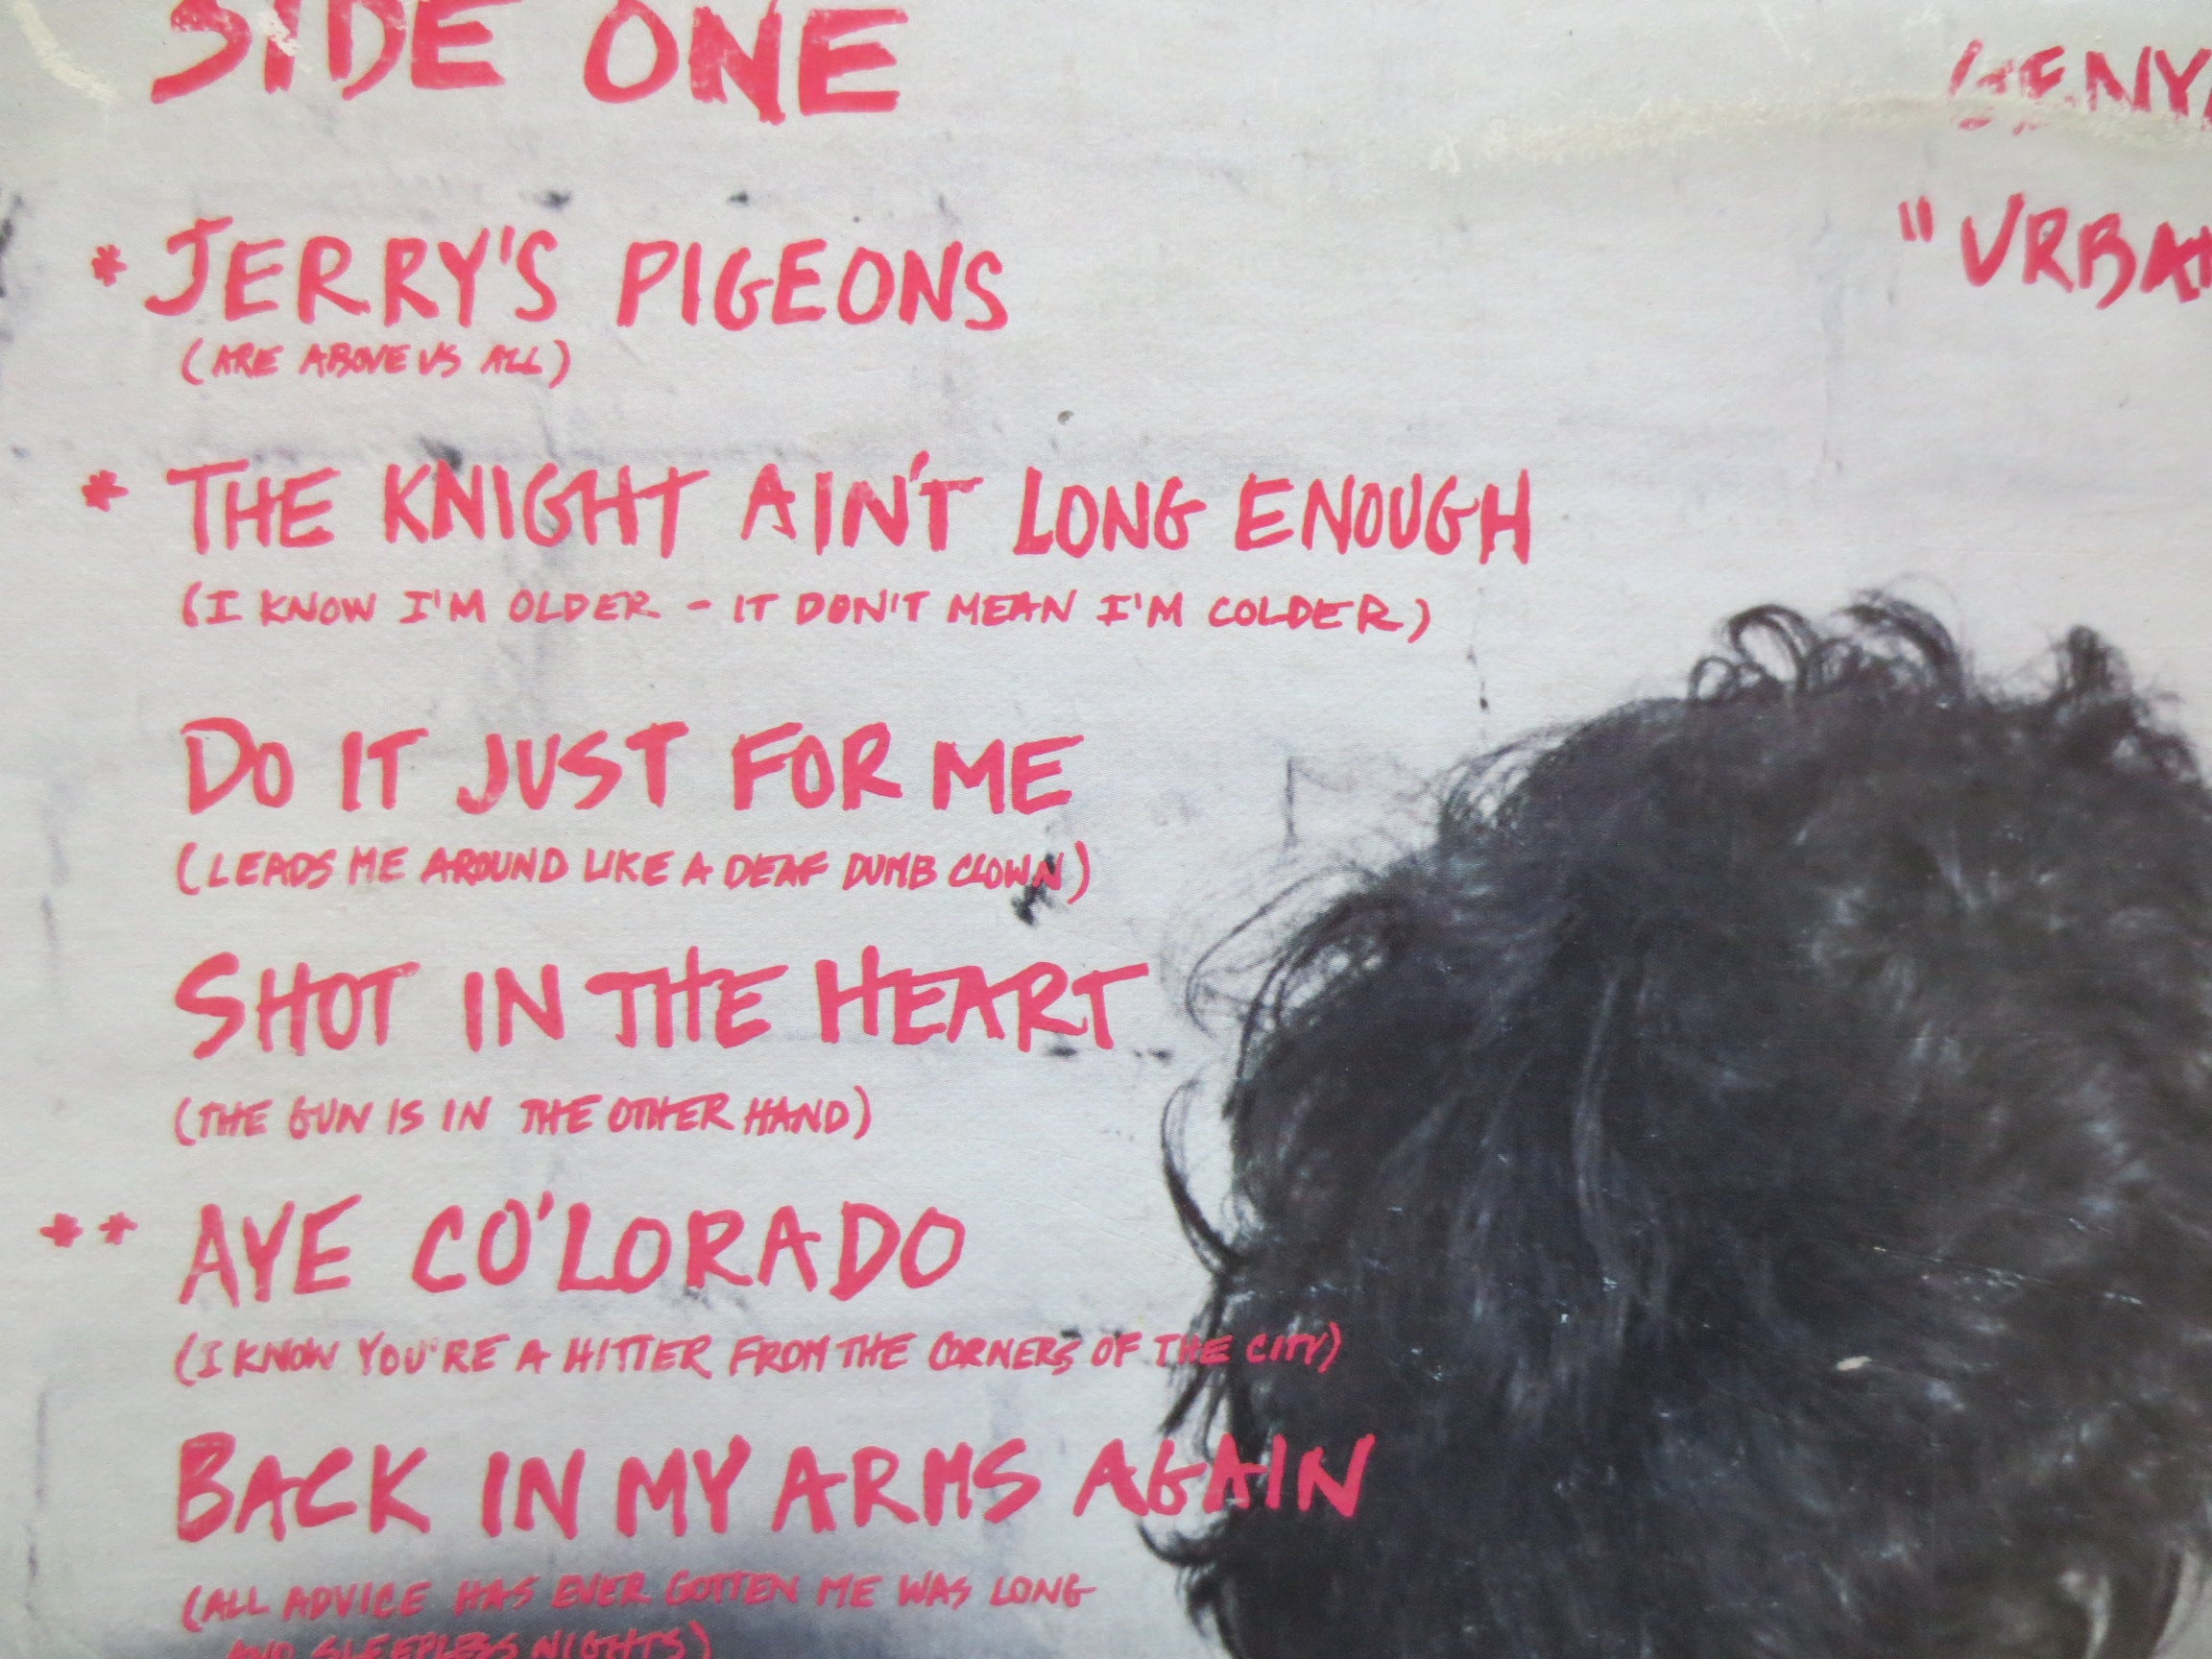 SIDE ONE
* JERRY'S PIGEONS
(ARE ABOVE US ALL)
* THE KNIGHT AIN'T LONG ENOUGH
(I KNOW I'M OLDER - IT DON'T MEAN I'M COLDER)
DO IT JUST FOR ME
(LEADS ME AROUND LIKE A DEAF DUMB CLOWN)
SHOT IN THE HEART
(THE GUN IS IN THE OTHER HAND)
** AYE CO'LORADO
(I KNOW YOU'RE A HITTER FROM THE CORNERS OF THE CITY)
BACK IN MY ARMS AGAIN
(ALL ADVICE HAS EVER GOTTEN ME WAS LONG
AND SLEEPLESS NIGHTS)